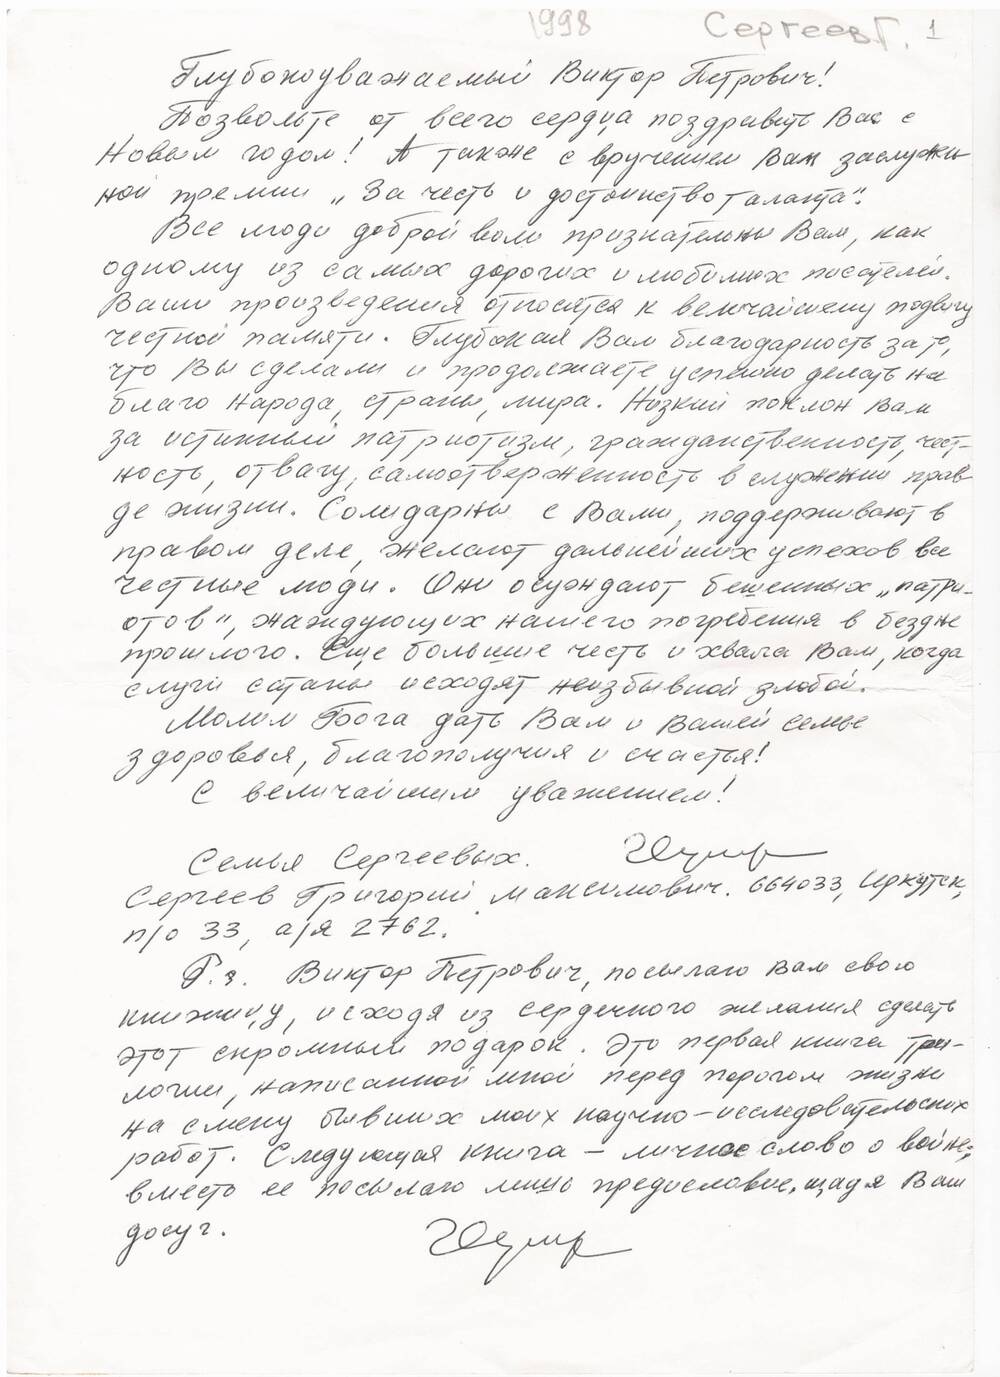 1998 Сергеев Г. 1
Глубокоуважаемый Виктор Петрович!
Позвольте от всего сердца поздравить Вас с
Новым годом! А также с вручением Вам заслужен-
ной премии „За честь и достоинство таланта".
Все люди доброй воли признательны Вам, как
одному из самых дорогих и любимых писателей.
Ваши произведения относятся к величайшему подвигу
честной памяти. Глубокая Вам благодарность за то,
что Вы сделали и продолжаете успешно делать на
благо народа, страны, мира. Низкий поклон Вам
за истинный патриотизм, гражданственность, чест-
ность, отвагу, самоотверженность в служении прав-
де жизни. Солидарны с Вами, поддерживают в
правом деле, желают дальнейших успехов все
честные люди. Они осуждают бешенных „патри-
отов", жаждующих нашего погребения в бездне
прошлого. Еще большие честь и хвала Вам, когда
слуги сатаны исходят неизбывной злобой.
Молим Бога дать Вам и Вашей семье
здоровья, благополучия и счастья!
С величайшим уважением!
Семья Сергеевых.
Сергеев Григорий Максимович. 664033, Иркутск,
п/о 33, а/я 2762.
P.s. Виктор Петрович, посылаю Вам свою
книжицу, исходя из сердечного желания сделать
этот скромный подарок. Это первая книга три-
логии, написанной мной перед порогом жизни
на смену бывших моих научно-исследовательских
работ. Следующая книга – личное слово о войне;
вместо ее посылаю лишь предисловие, щадя Ваш
досуг.